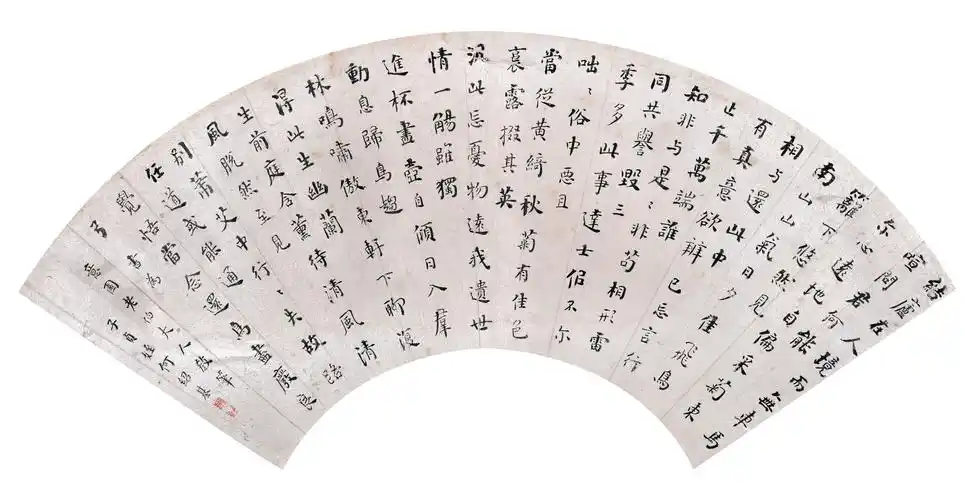 結廬在人境而無車馬
喧問君何能
尔心遠地自偏采菊東
籬下悠然見
南山山氣日夕佳飛鳥
相与還此中
有真意欲辨已忘言行
止千萬端誰
知非与是〻非苟相形雷
同共譽毀三
季多此事達士侣不尔
咄〻俗中惡且
當從黃綺 秋菊有佳色
裛露掇其英
汎此忘憂物遠我遺世
情一觴雖獨
進杯盡壺自傾日入羣
動息歸鳥趨
林鳴嘯傲東軒下聊復
得此生 幽蘭
生前庭含薰待清風清
風脫然至見
別蕭艾中行〻失故路
任道或能通
覺悟當念還鳥盡廢良
弓 書為
意園老伯大人教筆
子貞姪何紹基